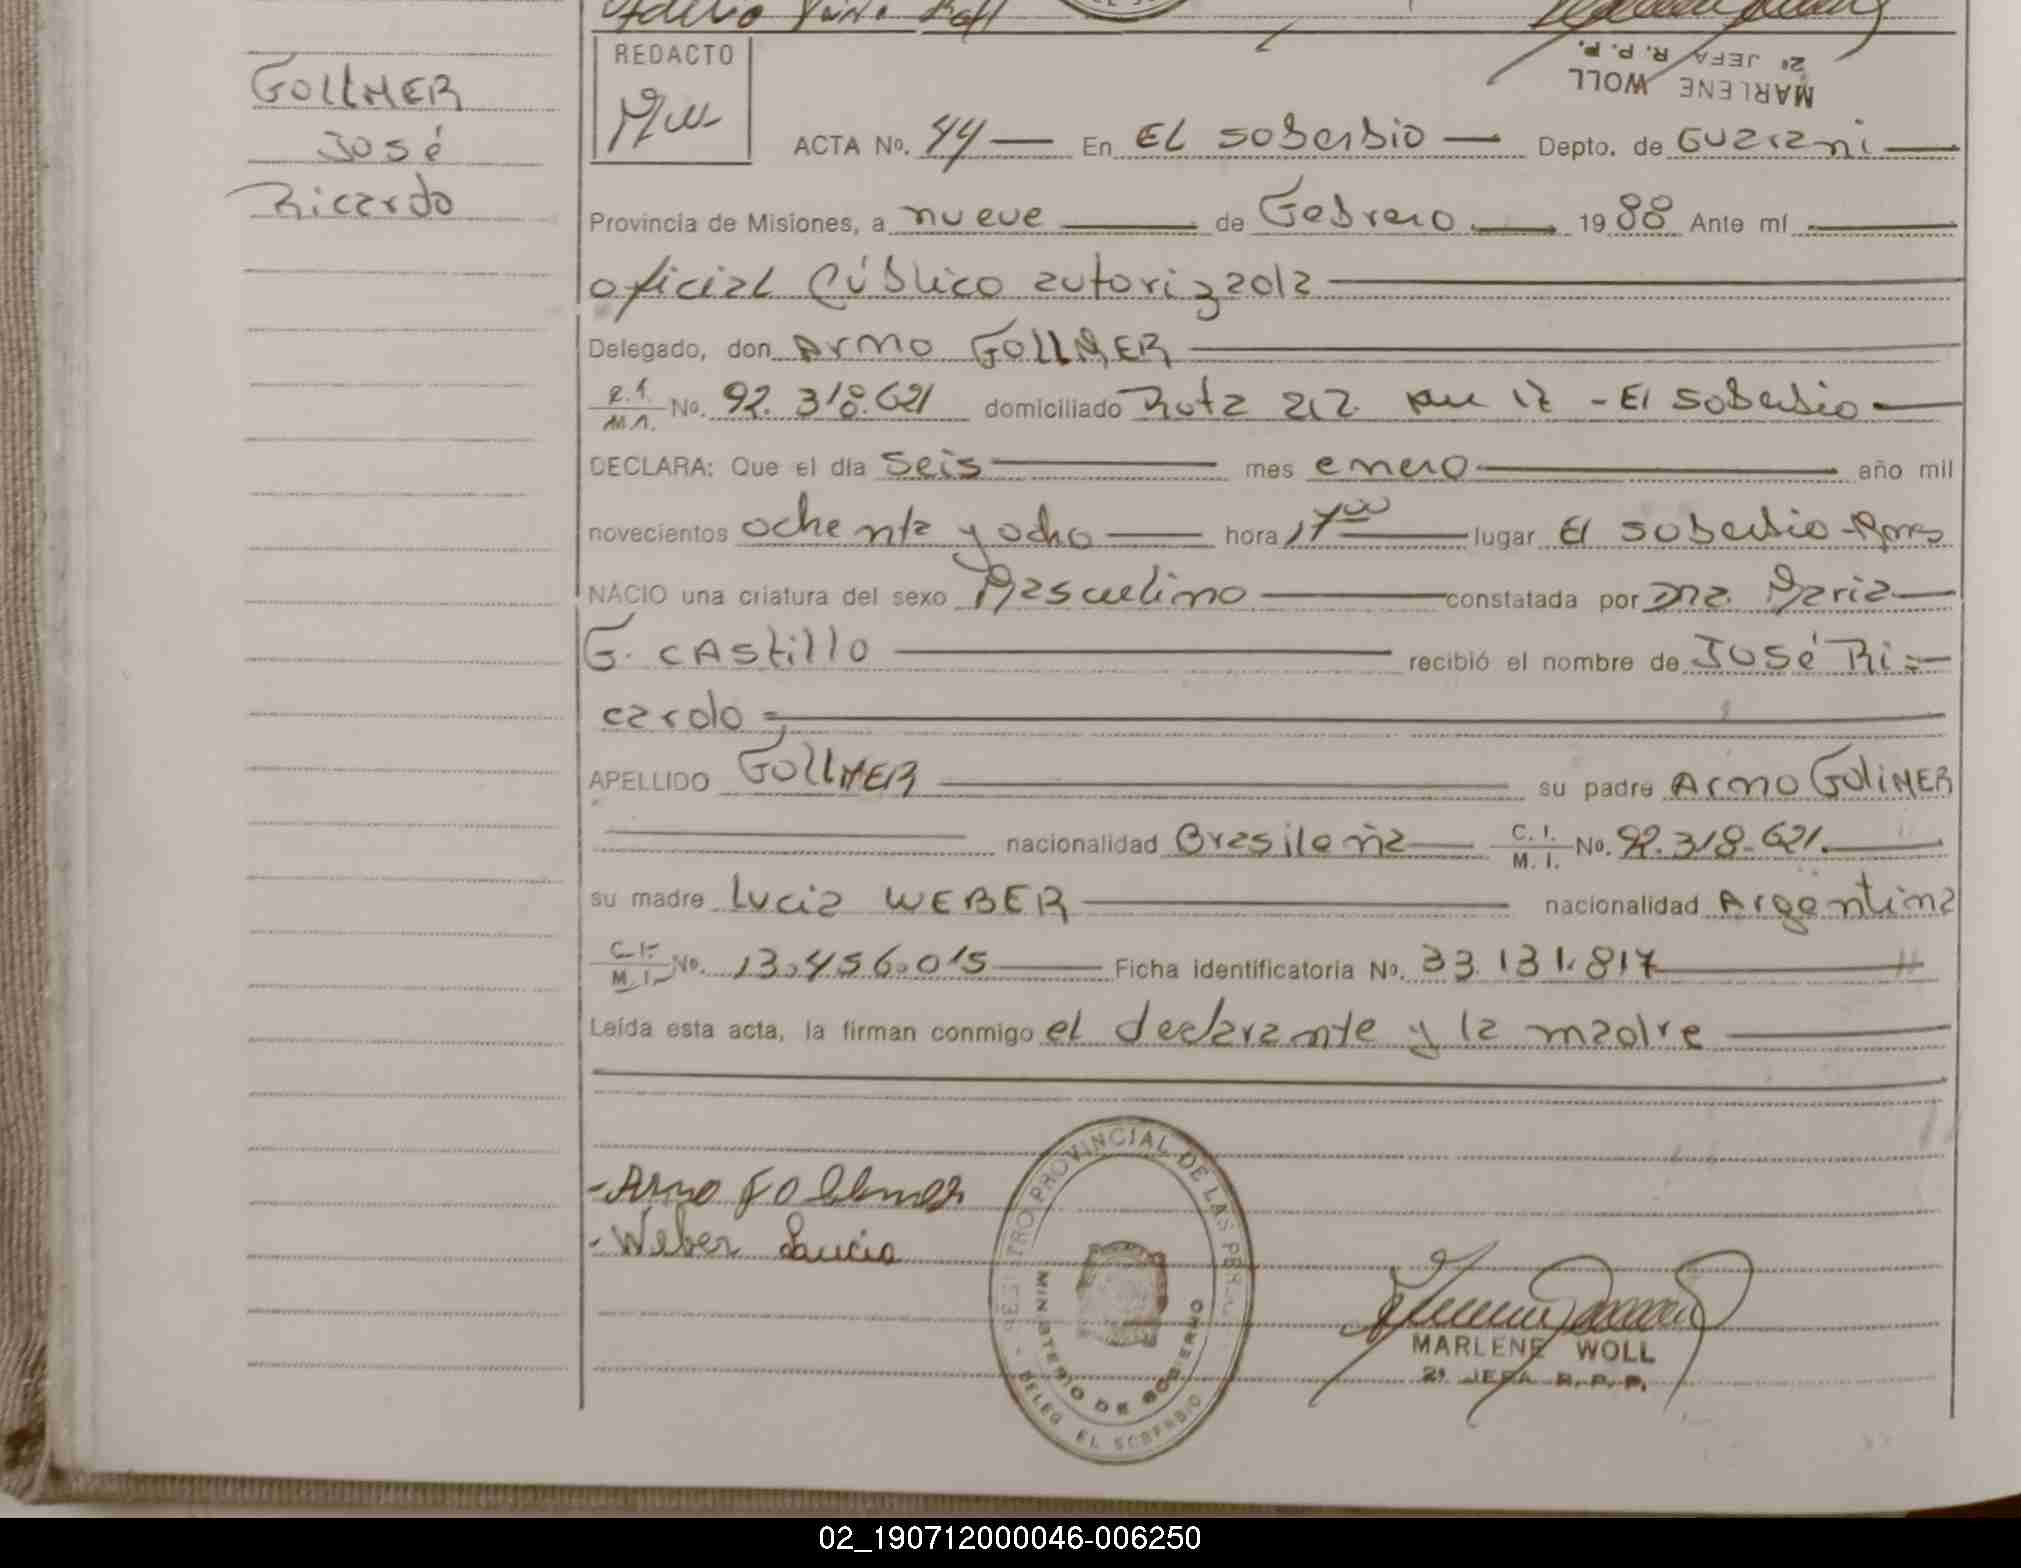 GOLLMER
José
Ricardo
REDACTO
MARLENE WOLL
2º JEFA R. P. P.
ACTA No. 44 En EL Soberbio Depto. de Guarani
Provincia de Misiones, a nueve de Febrero 1988 Ante mí
oficial Público autorizada
Delegado, don Arno GOLLMER
C.I. M.I. No. 92.318.621 domiciliado Ruta 212 km 17 - El Soberbio
DECLARA: Que el día seis mes enero año mil
novecientos ochenta y ocho hora 17 00 lugar El Soberbio - Mnes
NACIO una criatura del sexo Masculino constatada por Dña. Maria
G. Castillo recibió el nombre de José Ri=
cardo =
APELLIDO GOLLMER su padre Arno GOLLMER
nacionalidad Brasileña C. I. M. I. No. 92.318.621.
su madre Lucia WEBER nacionalidad Argentina
C. I. M. I. No. 13.456.015 Ficha identificatoria No. 33.131.817
Leída esta acta, la firman conmigo el declarante y la madre
- Arno Gollmer
- Weber Lucia
REGISTRO PROVINCIAL DE LAS PERS
MINISTERIO DE GOBIERNO
- DELEG EL SOBERBIO
MARLENE WOLL
2º JEFA R. P. P.
02_190712000046-006250